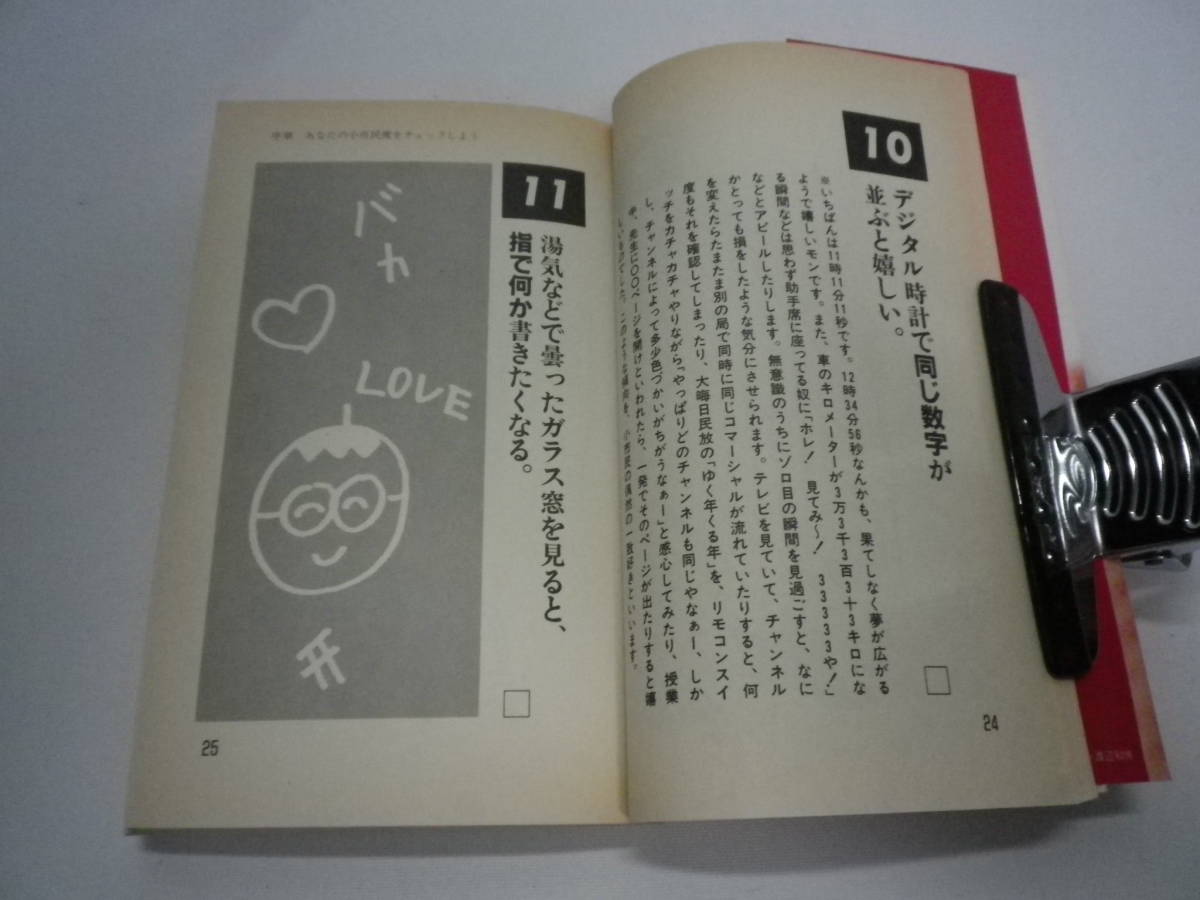 10
デジタル時計で同じ数字が
並ぶと嬉しい。
※いちばんは11時11分11秒です。12時34分56秒なんかも、果てしなく夢が広がる
ようで嬉しいモンです。また、車のキロメーターが3万3千3百3十3キロにな
る瞬間などは思わず助手席に座ってる奴に「ホレ！ 見てみ〜！ 33333や！」
などとアピールしたりします。無意識のうちにゾロ目の瞬間を見過ごすと、なに
かとっても損をしたような気分にさせられます。テレビを見ていて、チャンネル
を変えたらたまたま別の局で同時に同じコマーシャルが流れていたりすると、何
度もそれを確認してしまったり、大晦日民放の「ゆく年くる年」を、リモコンスイ
ッチをカチャカチャやりながら「やっぱりどのチャンネルも同じやなぁー、しか
し、チャンネルによって多少色づかいがちがうなぁー」と感心してみたり、授業
中、先生に〇〇ページを開けといわれたら、一発でそのページが出たりすると嬉
しいものでした。このような傾向を、小市民の偶然の一致好きといいます。
24
序章 あなたの小市民度をチェックしよう
11
湯気などで曇ったガラス窓を見ると、
指で何か書きたくなる。
バカ
LOVE
25